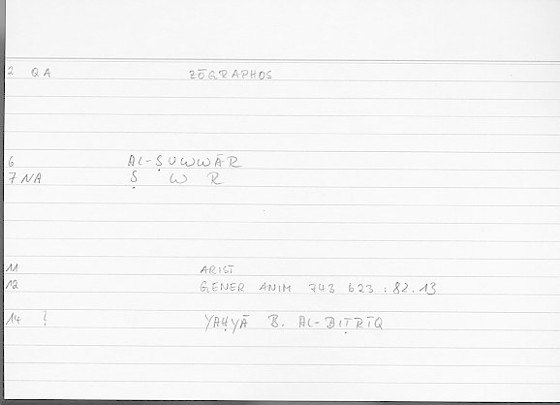 2 QA ZŌGRAPHOS
6 AL-ṢUWWĀR
7 NA Ṣ W R
11 ARIST
12 GENER ANIM 743 623 : 82.13
14 ? YAḤYĀ B. AL-BIṬRĪQ